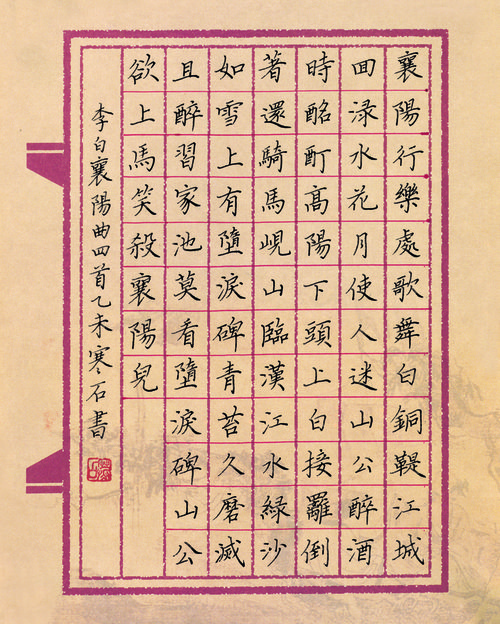 襄陽行樂處歌舞白銅鞮江城
囬淥水花月使人迷山公醉酒
時酩酊髙陽下頭上白接䍦倒
著還騎馬峴山臨漢江水綠沙
如雪上有墮淚碑青苔久磨滅
且醉習家池莫看墮淚碑山公
欲上馬笑殺襄陽兒
李白襄陽曲四首乙未寒石書